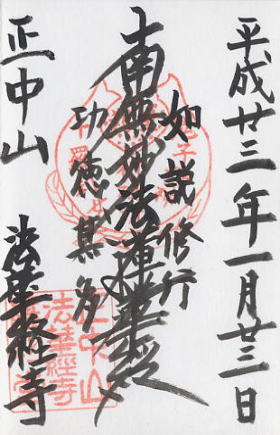 平成廿三年一月廿三日
如説修行
南無妙法蓮華経
功徳甚多
正中山
法華経寺
法華經寺